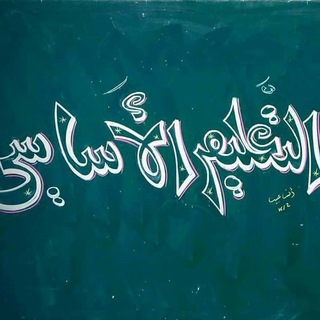 التعليم الأساسي